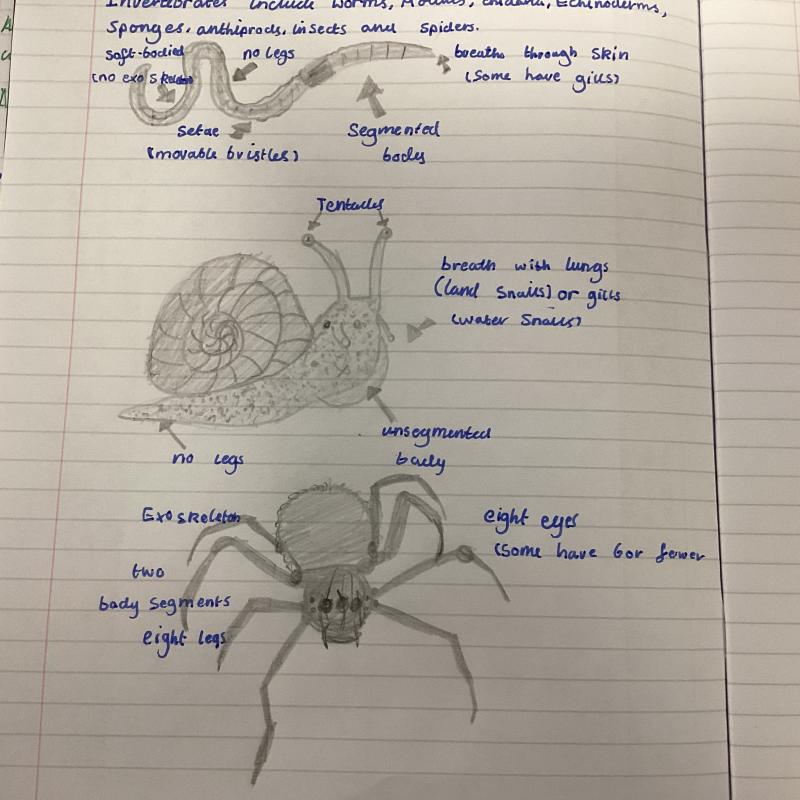 Invertebrates include worms, Molluks, cnidaria, Echinoderms,
Sponges, anthiprods, insects and spiders.
soft-bodied
(no exo skeleton)
no legs
breaths through skin
(some have gills)
setae
(movable bristles)
Segmented
body
Tentacles
breath with lungs
(land snails) or gills
(water snails)
unsegmented
body
no legs
Exoskeleton
eight eyes
(some have 6 or fewer
two
body segments
eight legs